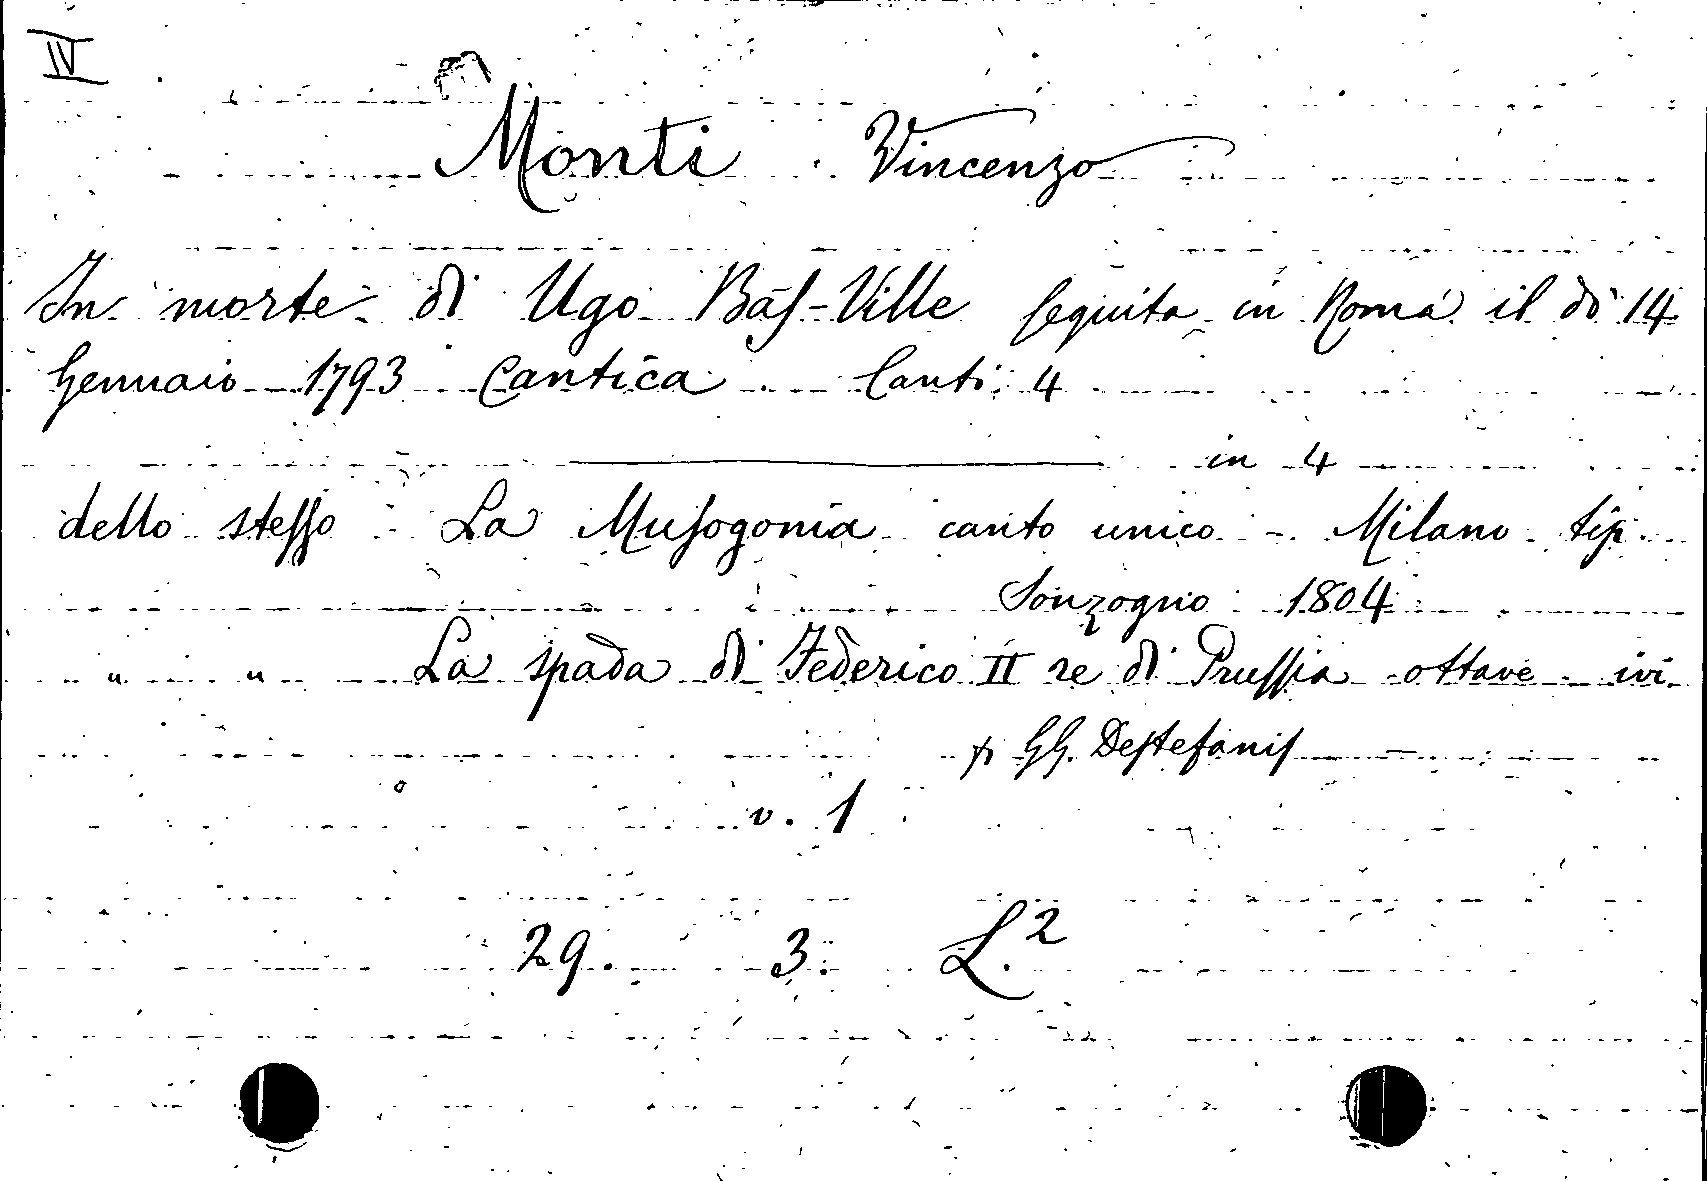 IV
Monti Vincenzo
In morte di Ugo Bas-Ville seguita in Roma il dì 14
Gennaio 1793 Cantica Canti 4
in 4
dello stesso La Musogonia canto unico - Milano tip.
Sonzogno 1804
" " La spada di Federico II re di Prussia ottave ivi
GG. Destefanis
v. 1
29. 3. L.2